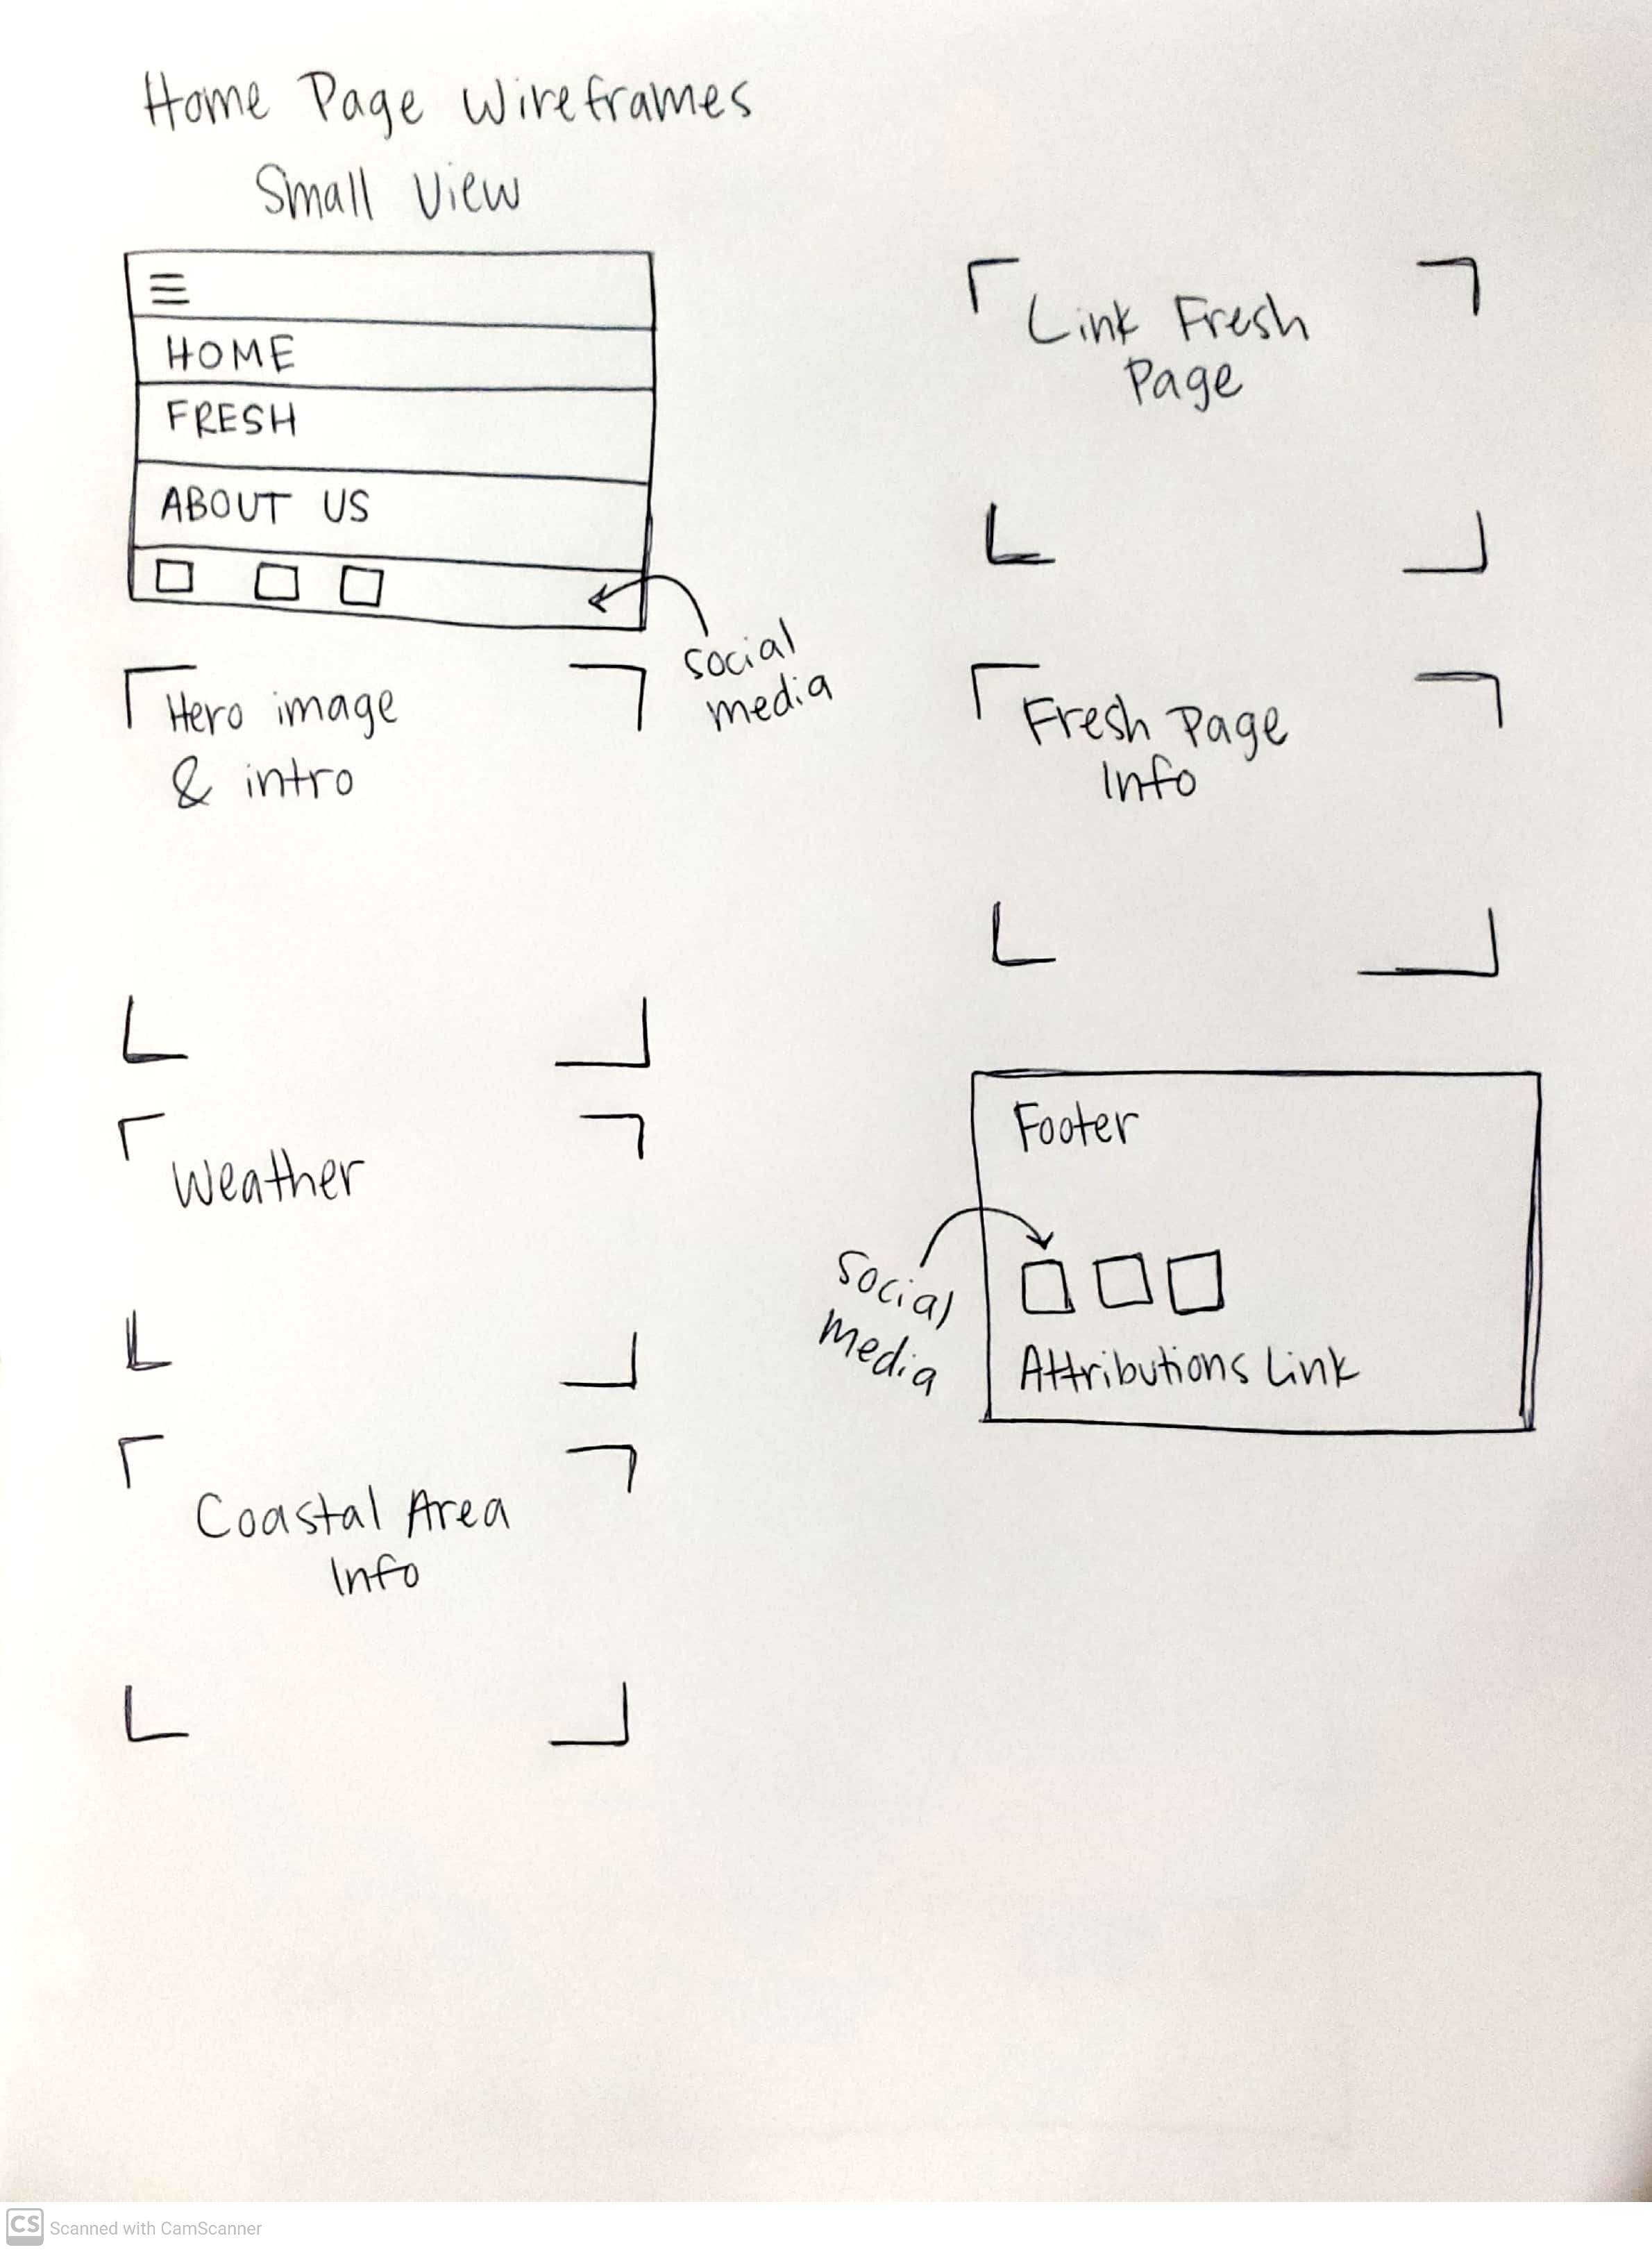 Home Page Wireframes
Small View
HOME
FRESH
ABOUT US
social
media
Hero image
& intro
Weather
Coastal Area
Info
Link Fresh
Page
Fresh Page
Info
Footer
Social
Media
Attributions Link
CS Scanned with CamScanner